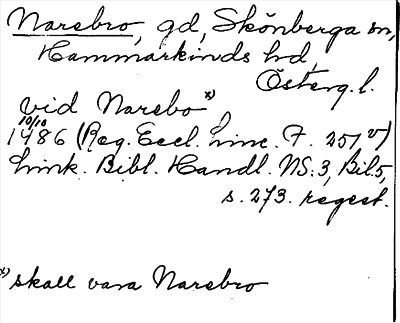 Narebro, gd, Skönberga sn,
Hammarkinds hd,
Österg. l.
vid Narebo x),
10/10
1486 (Reg. Eccl. Linc. F. 251 v)
Link. Bibl. Handl. NS: 3, Bil 5,
s. 273. regest.
x) skall vara Narebro